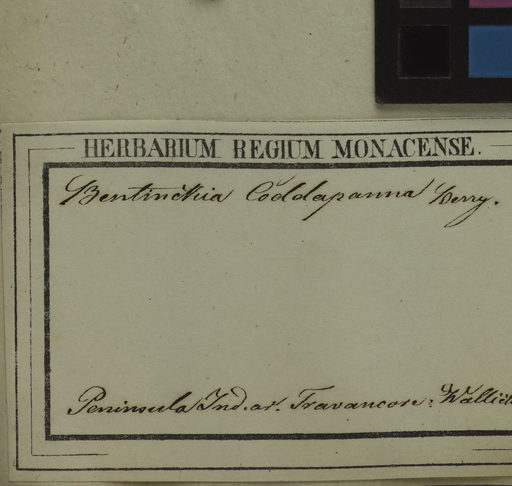 HERBARIUM REGIUM MONACENSE.
Bentinckia Coddapanna Berry.
Peninsula Ind. or. Travancore: Wallich